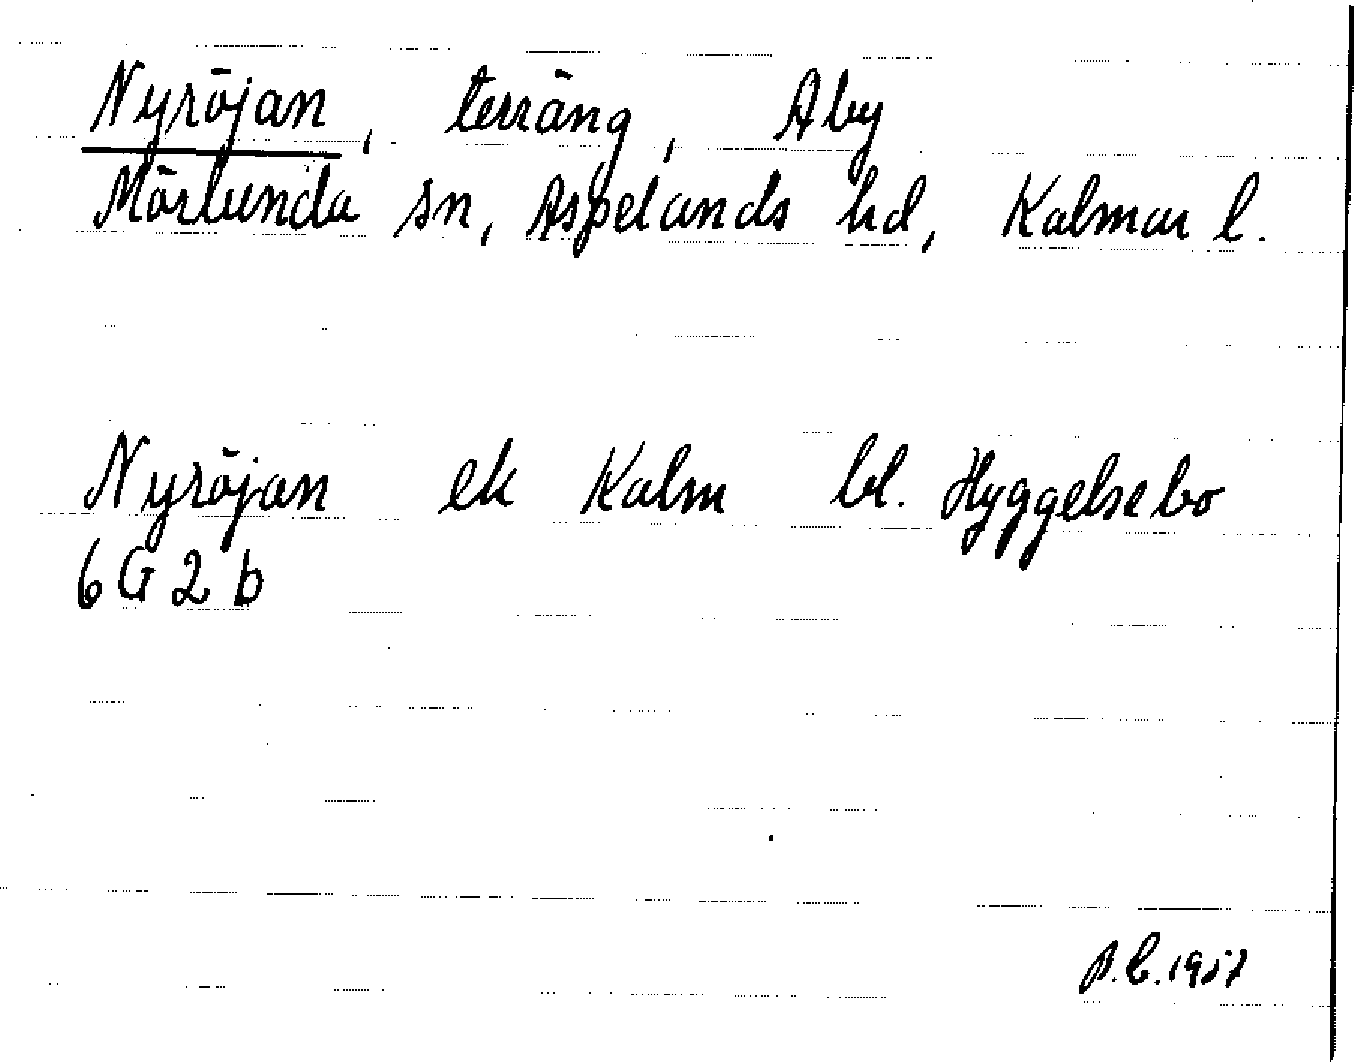 Nyröjan, terräng, Åby
Mörlunda sn, Aspelands hd, Kalmar l.
Nyröjan ek Kalm bl. Hyggelsebo
6 G 2 b
1957